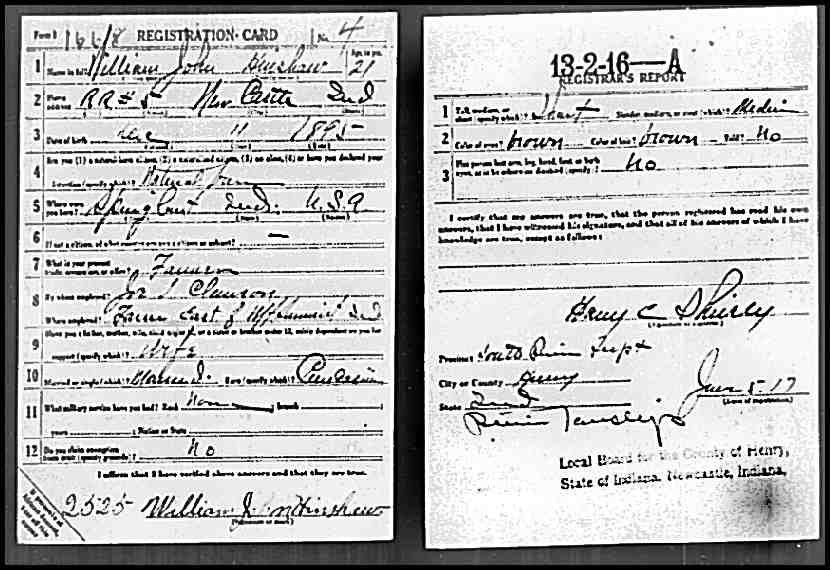 Form 1 1661/8 REGISTRATION CARD No. 4
1 Name in full William John Hinshaw Age in yrs. 21
2 Home address RR#5 New Castle Ind
3 Date of birth Dec 11 1895
Are you (1) a natural-born citizen, (2) a naturalized citizen, (3) an alien, (4) or have you declared your
4 intention (specify which)? Natural
5 Where were you born? Ind. U.S.A
6 If not a citizen, of what country are you a citizen or subject? —
7 What is your present trade, occupation, or office? Farmer
8 By whom employed?
Where employed? Farm East of Ind
Have you a father, mother, wife, child under 12, or a sister or brother under 12, solely dependent on you for
9 support (specify which)? Wife
10 Married or single (which)? Married. Race (specify which)? Caucasian
11 What military service have you had? Rank None branch
years Nation or State
12 Do you claim exemption from draft (specify grounds)? No
I affirm that I have verified above answers and that they are true.
2525 William John Hinshaw
(Signature or mark)
13-2-16—A
REGISTRAR'S REPORT
1 Tall, medium, or short (specify which)? Short Slender, medium, or stout (which)? Medium
2 Color of eyes? brown Color of hair? brown Bald? No
3 Has person lost arm, leg, hand, foot, or both eyes, or is he otherwise disabled (specify)? No
I certify that my answers are true, that the person registered has read his own
answers, that I have witnessed his signature, and that all of his answers of which I have
knowledge are true, except as follows:
Henry C Shirley
(Signature of registrar)
Precinct
City or County Henry
State Ind June 5-17
(Date of registration)
Local Board for the County of Henry,
State of Indiana, Newcastle, Indiana.